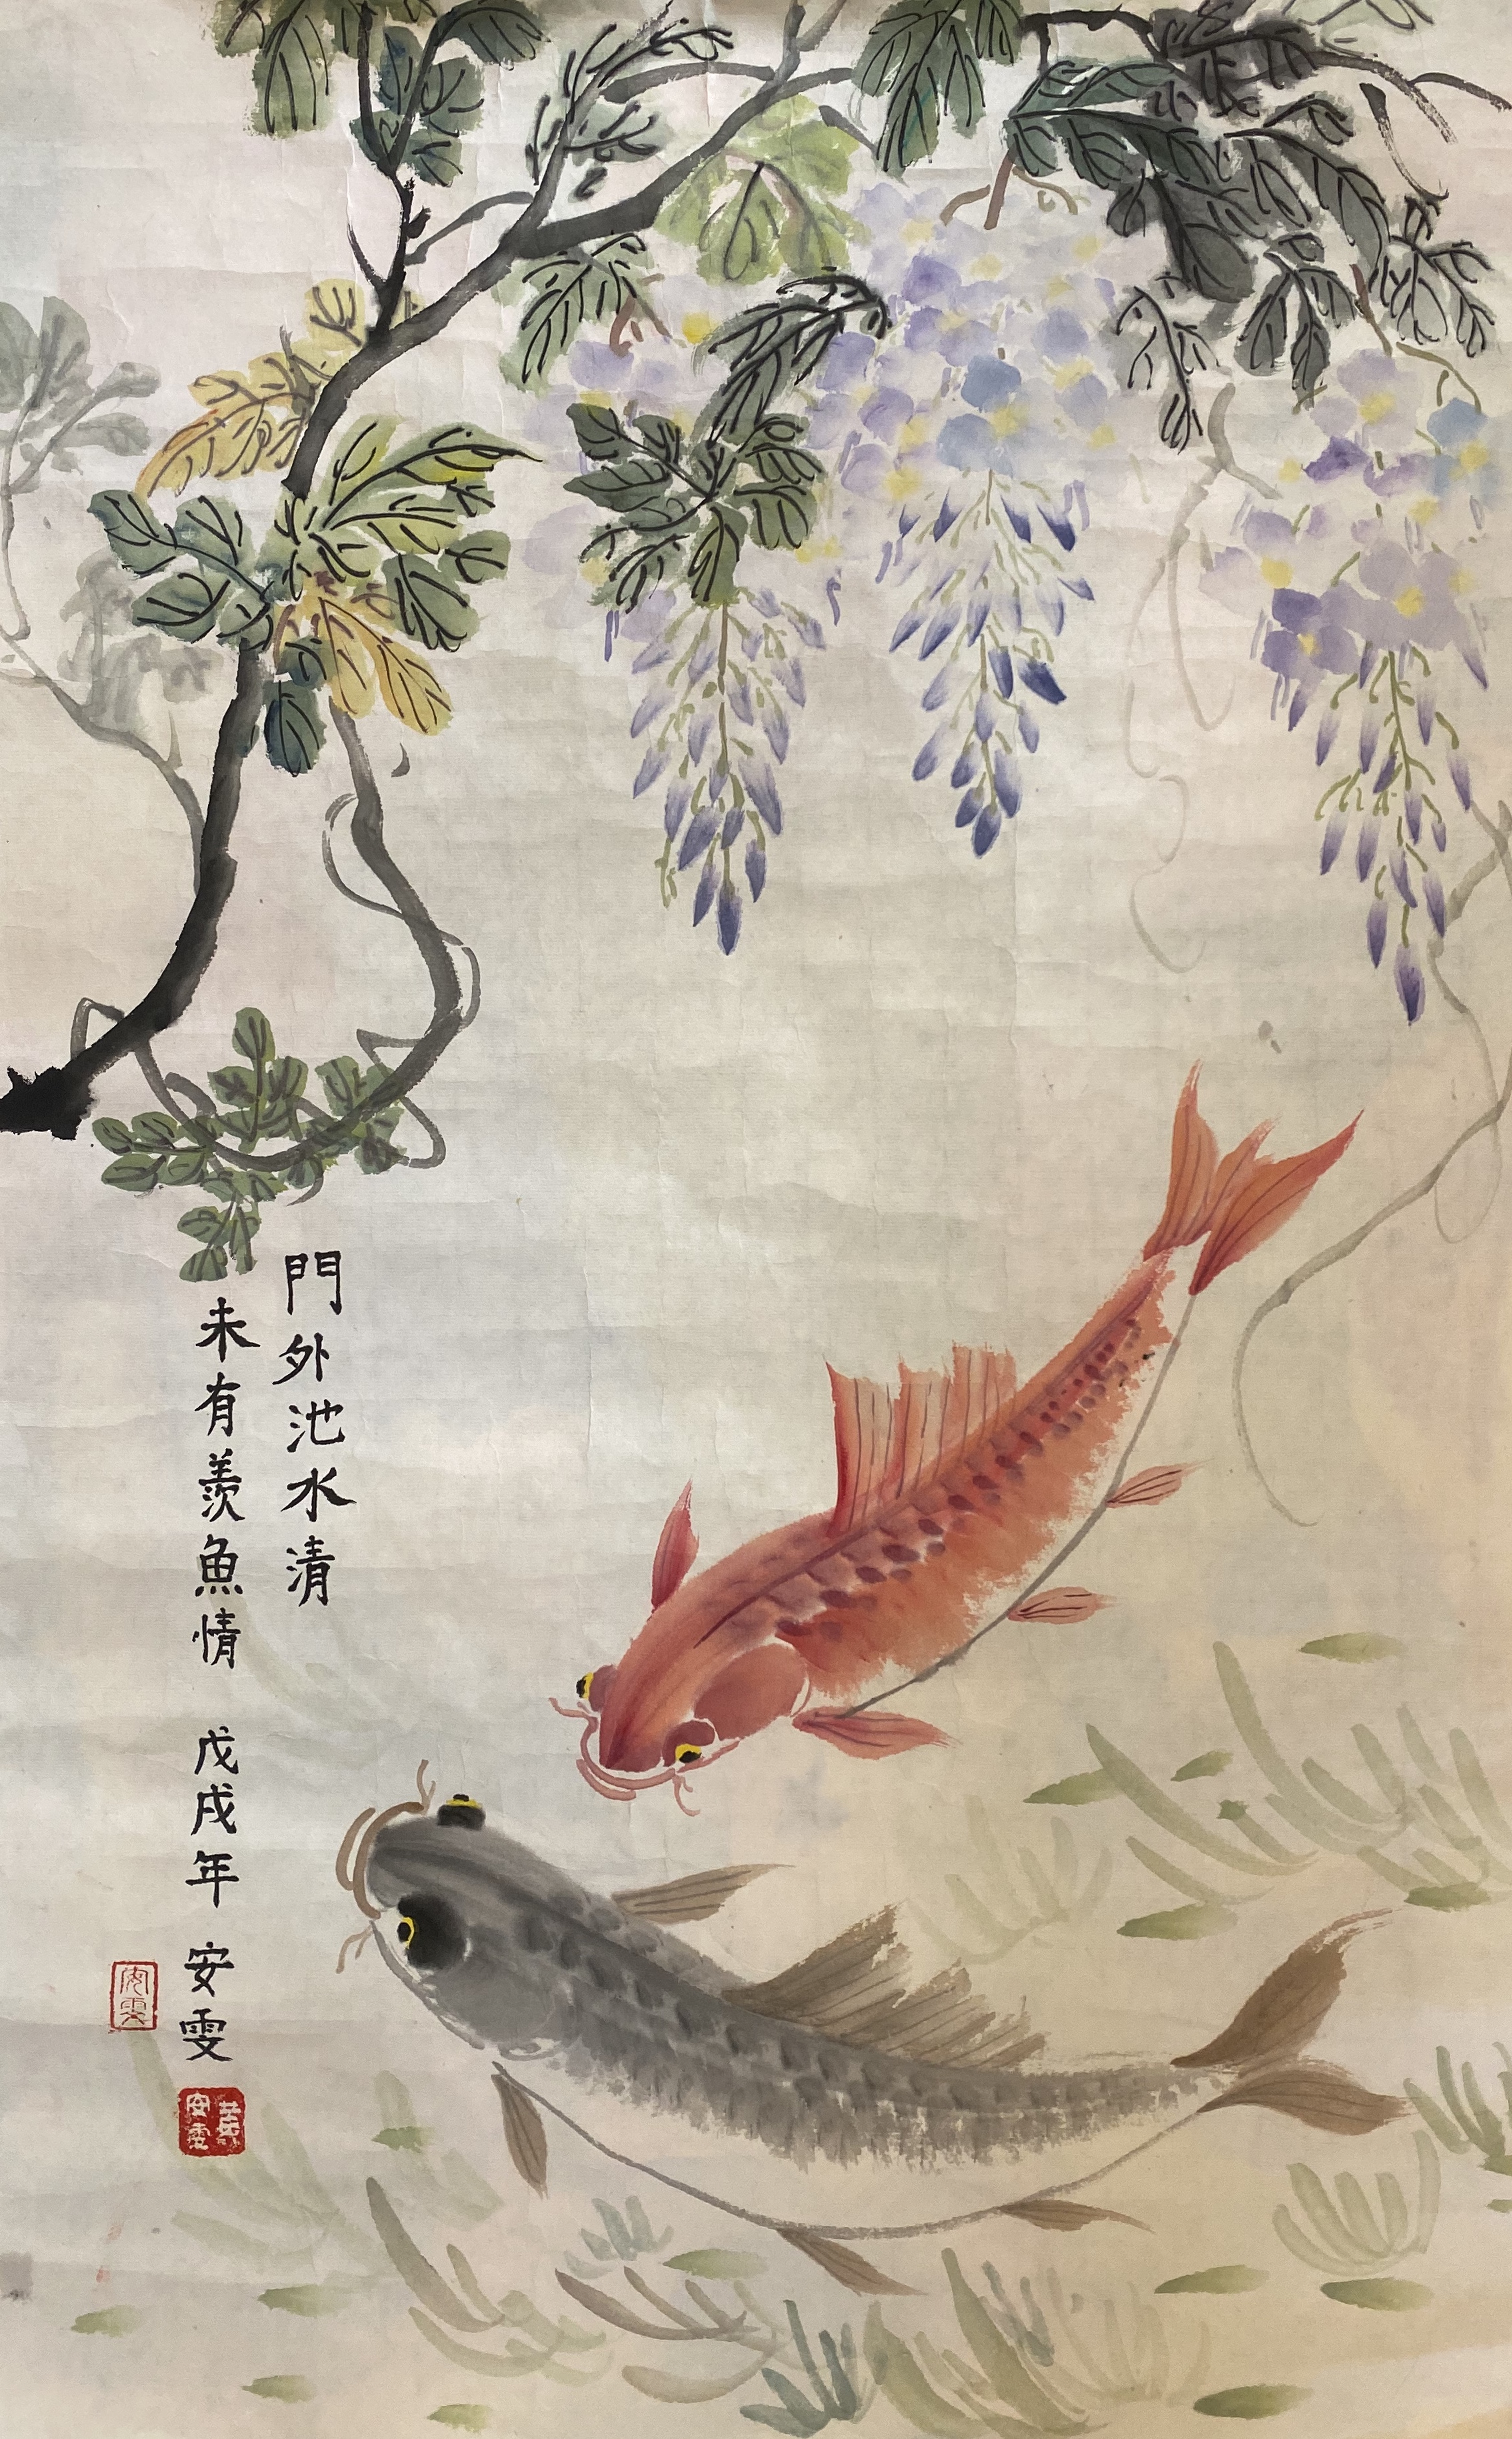 門外池水清
未有羨魚情 戊戌年 安雯
安雯
黃安雯